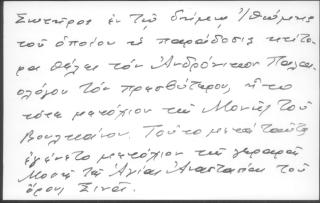 Σωτῆρος ἐν τῷ δήμῳ Ἰθώμης
τοῦ ὁποίου ἡ παράδοσις κτίτο-
ρα θέλει τὸν Ἀνδρόνικον Παλαι-
ολόγον τὸν πρεσβύτερον, ἦτο
τότε μετόχιον τῆς Μονῆς τοῦ
Βουλκάνου. Τοῦτο μετὰ ταῦτα
ἐγένετο μετόχιον τῆς ἱερᾶς
Μονῆς τῆς Ἁγίας Ἀναστασίας τοῦ
ὄρους Σινᾶ.